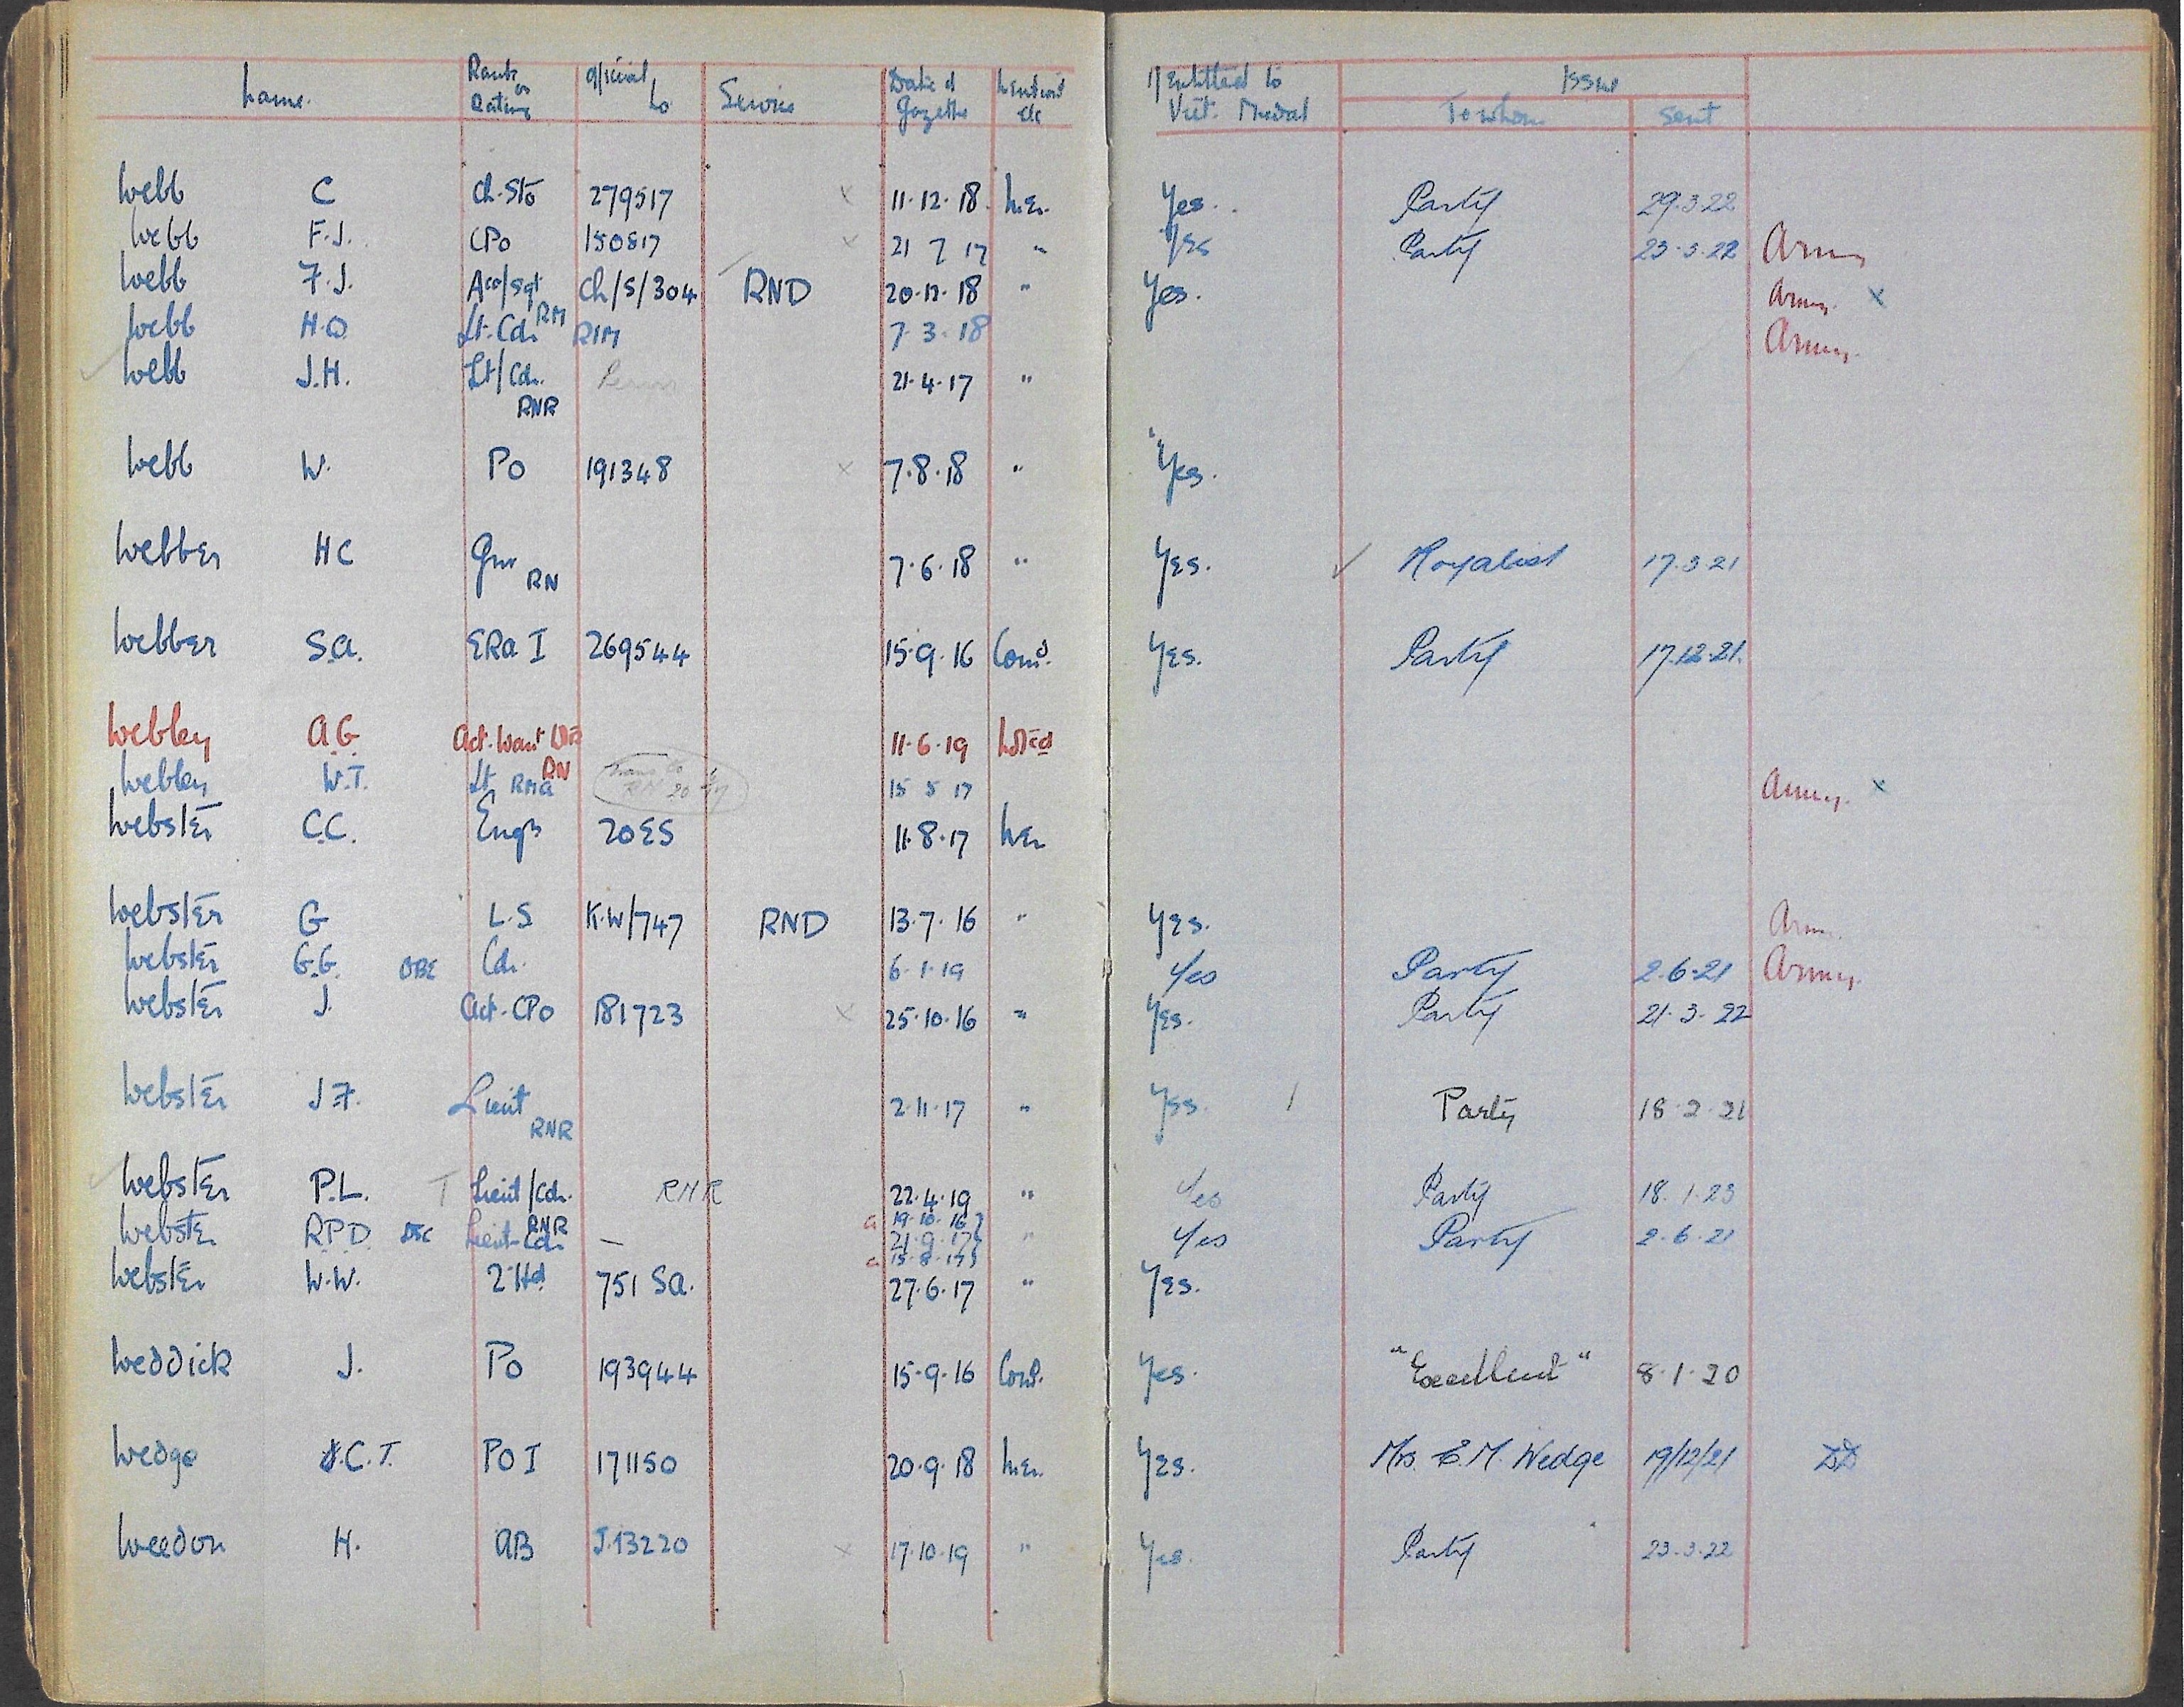 Name. Rank or Rating Official No Service Date of Gazette Mentioned etc If Entitled to Vict. Medal Issue To whom Sent
Webb C Ch. Sto 279517 x 11.12.18. Men. Yes. Party 29.3.22
Webb F.J. CPO 150817 x 21 7 17 " Yes Party 23.3.22 Army
Webb F.J. Aco/Sgt RM Ch/S/304 RND 20.12.18 " Yes. Army. x
Webb H.O. Lt. Cdr RIM 7.3.18 Army.
Webb J.H. Lt/Cdr. RNR 21.4.17 "
Webb W. PO 191348 x 7.8.18 " Yes.
Webber HC Gnr RN 7.6.18 " Yes. ✓ Royalist 17.3.21
Webber S.A. ERA I 269544 15.9.16 Comd. Yes. Party 17.12.21.
Webley A.G. Act. Warrt RN 11.6.19 Noted
Webley W.T. Lt RMA 15 5 17 Army. x
Webster C.C. Engr 20ES 11.8.17 Men
Webster G L.S KW/747 RND 13.7.16 " Yes. Army.
Webster G.G. OBE Cdr. 6.1.19 Yes Party 2.6.21 Army.
Webster J. Act. CPO 181723 x 25.10.16 " Yes. Party 21.3.22
Webster J F. Lieut RNR 2.11.17 " Yes. / Party 18.2.21
Webster P.L. T Lieut/Cdr. RNR RNR 22.4.19 " Yes Party 18.1.23
Webster R.P.D. DSC Lieut-Cdr — a 19.10.16 21.9.17 a 15.8.17 " Yes Party 2.6.21
Webster W.W. 2 Hd 751 SA. 27.6.17 " Yes.
Weddick J. PO 193944 15.9.16 Comd. Yes. "Excellent" 8.1.20
Wedge J.C.T. PO I 171150 20.9.18 Men. Yes. Mrs. E.M. Wedge 19/12/21 DD
Weedon H. AB J.13220 x 17.10.19 " Yes. Party 23.3.22